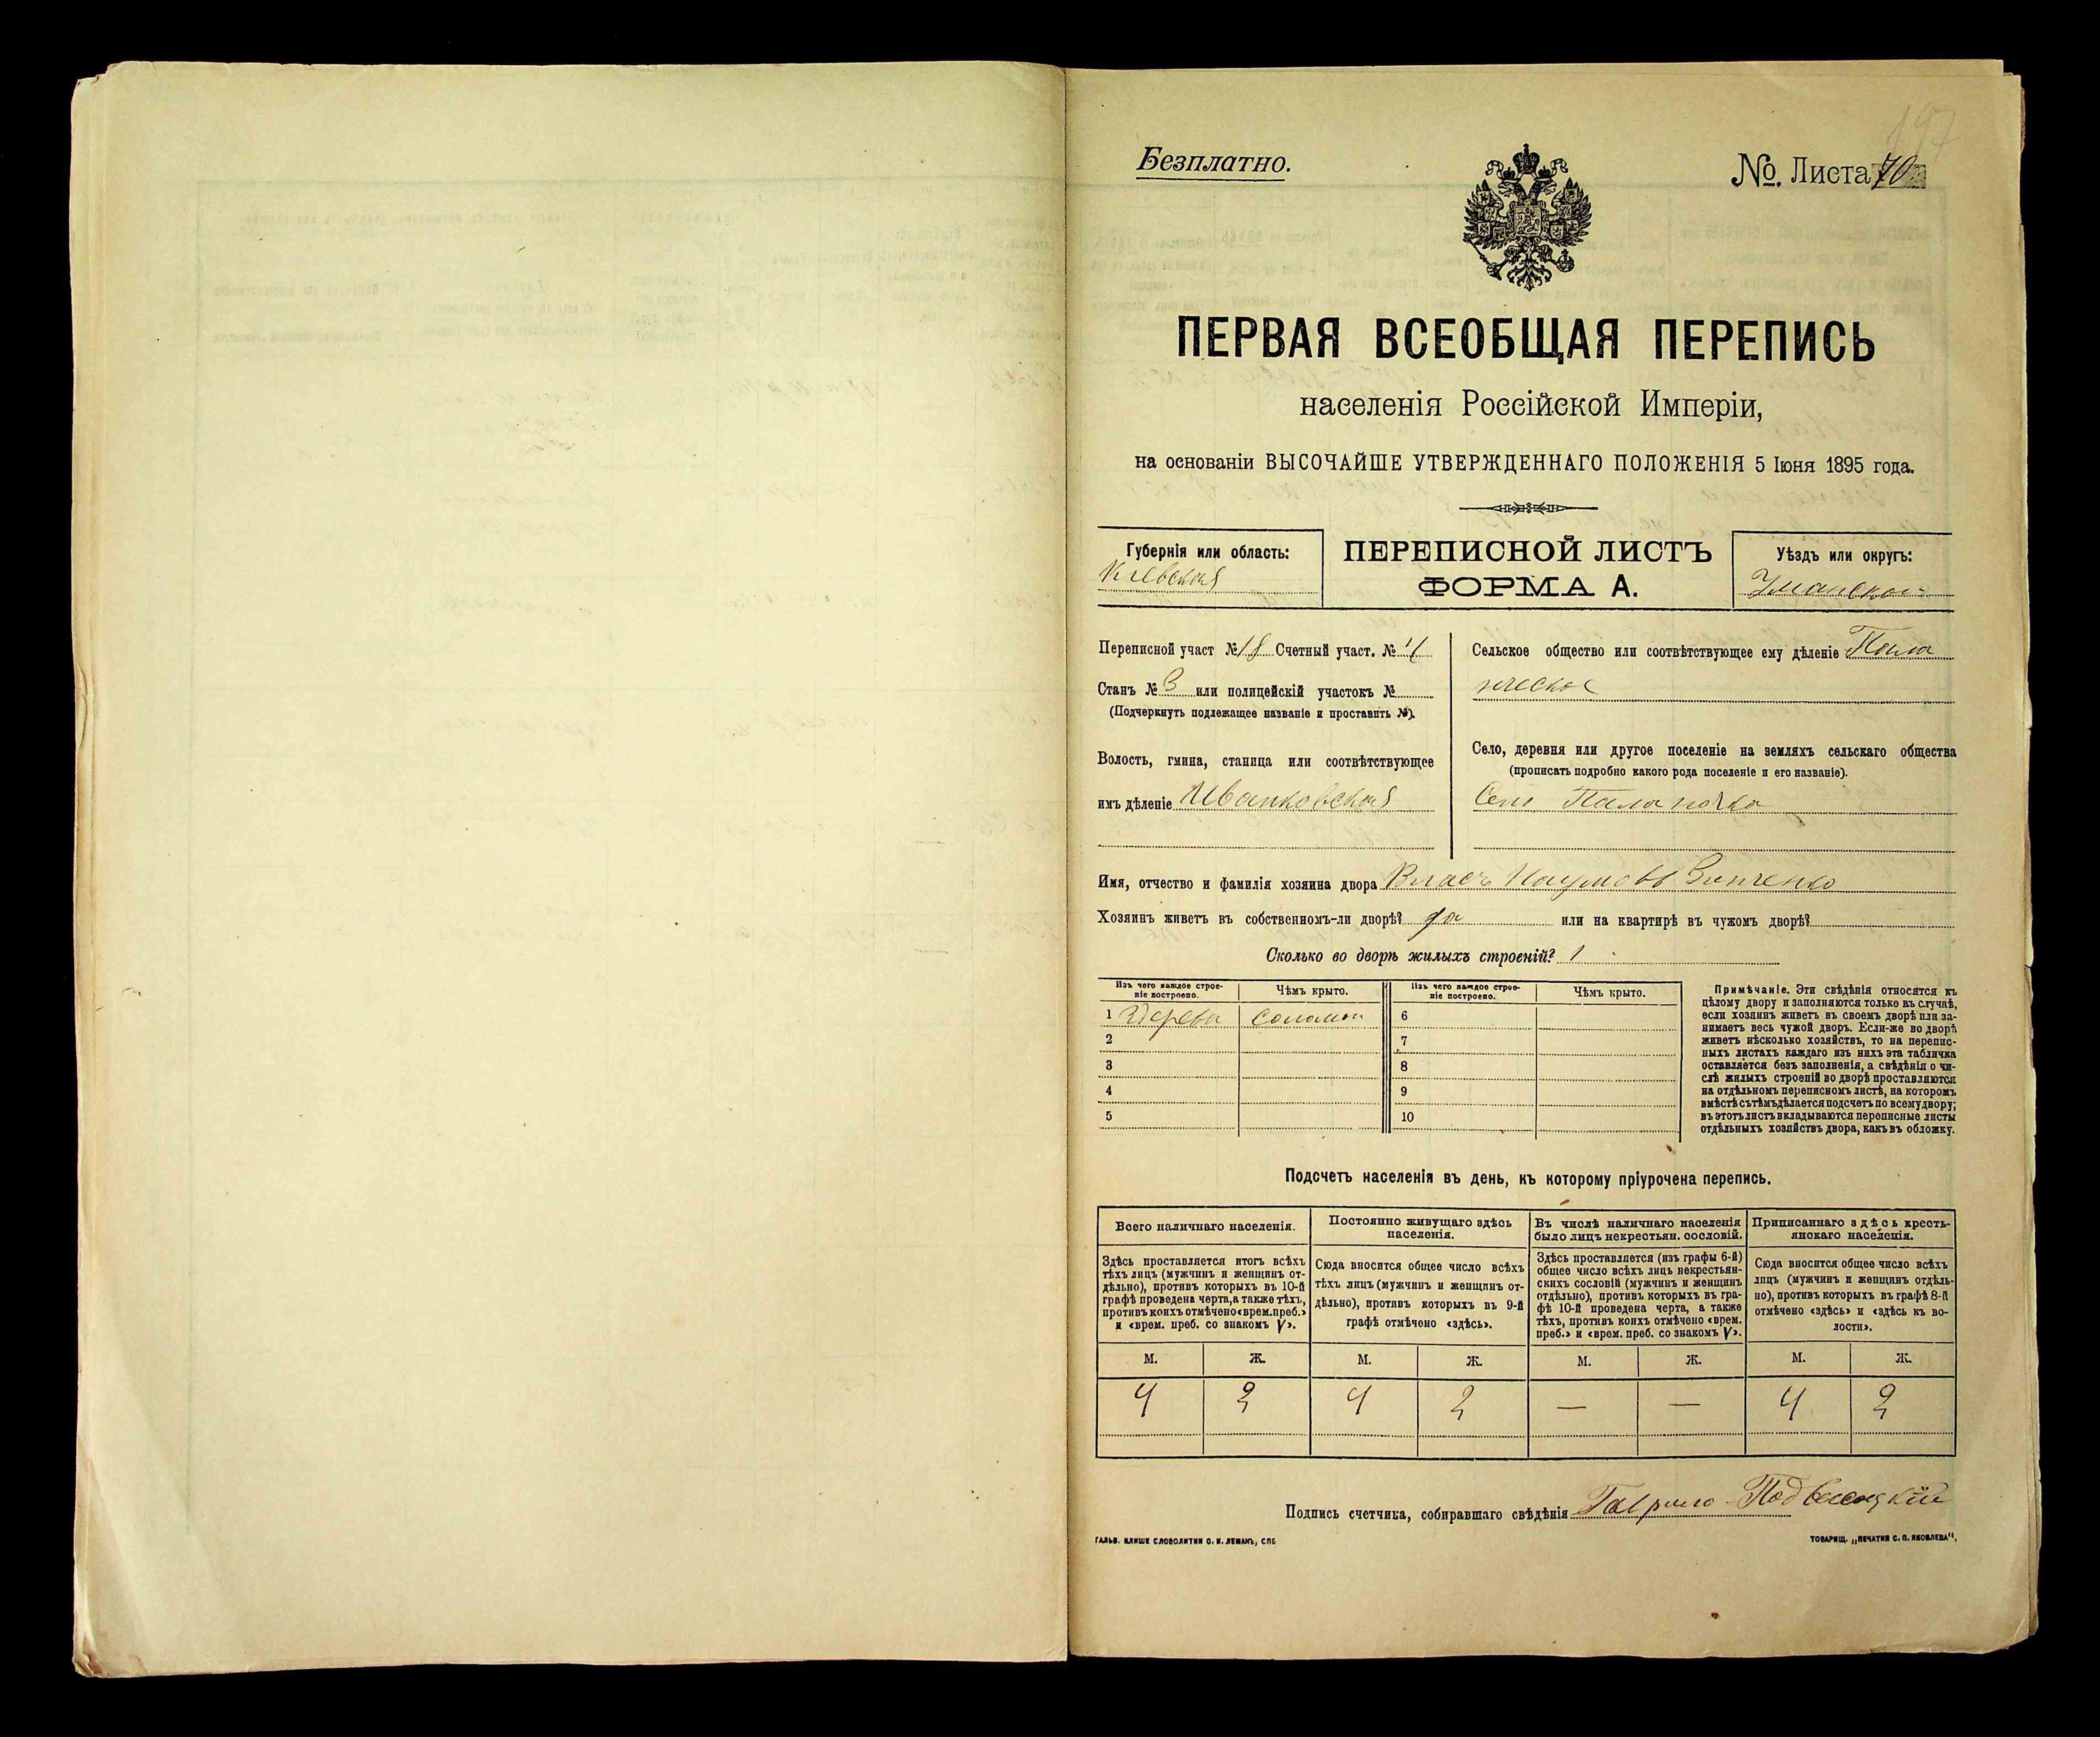 197
Безплатно.
№. Листа 70
ПЕРВАЯ ВСЕОБЩАЯ ПЕРЕПИСЬ
населенія Россійской Имперіи,
на основаніи ВЫСОЧАЙШЕ УТВЕРЖДЕННАГО ПОЛОЖЕНІЯ 5 Іюня 1895 года.
Губернія или область:
Кіевская
ПЕРЕПИСНОЙ ЛИСТЪ
ФОРМА А.
Уѣздъ или округъ:
Уманскій
Переписной участ № 18 Счетный участ. № 4
Станъ № 3 или полицейскій участокъ №
(Подчеркнуть подлежащее названіе и проставить №).
Волость, гмина, станица или соотвѣтствующее
имъ дѣленіе Иванковская
Сельское общество или соотвѣтствующее ему дѣленіе Пала
нческое
Село, деревня или другое поселеніе на земляхъ сельскаго общества
(прописать подробно какого рода поселеніе и его названіе).
Село Паланочка
Имя, отчество и фамилія хозяина двора Власъ Наумовъ Зинченко
Хозяинъ живетъ въ собственномъ-ли дворѣ? да или на квартирѣ въ чужомъ дворѣ?
Сколько во дворѣ жилыхъ строеній? 1
Изъ чего каждое строе-
ніе построено.
Чѣмъ крыто.
Изъ чего каждое строе-
ніе построено.
Чѣмъ крыто.
1 Дерева соломой 6
2 7
3 8
4 9
5 10
Примѣчаніе. Эти свѣдѣнія относятся къ
цѣлому двору и заполняются только въ случаѣ,
если хозяинъ живетъ въ своемъ дворѣ или за-
нимаетъ весь чужой дворъ. Если-же во дворѣ
живетъ нѣсколько хозяйствъ, то на перепис-
ныхъ листахъ каждаго изъ нихъ эта табличка
оставляется безъ заполненія, а свѣдѣнія о чи-
слѣ жилыхъ строеній во дворѣ проставляются
на отдѣльномъ переписномъ листѣ, на которомъ
вмѣстѣ съ тѣмъ дѣлается подсчетъ по всему двору;
въ этотъ листъ вкладываются переписные листы
отдѣльныхъ хозяйствъ двора, какъ въ обложку.
Подсчетъ населенія въ день, къ которому пріурочена перепись.
Всего наличнаго населенія.
Здѣсь проставляется итогъ всѣхъ
тѣхъ лицъ (мужчинъ и женщинъ от-
дѣльно), противъ которыхъ въ 10-й
графѣ проведена черта, а также тѣхъ,
противъ коихъ отмѣчено «врем. преб.»
и «врем. преб. со знакомъ V».
Постоянно живущаго здѣсь
населенія.
Сюда вносится общее число всѣхъ
тѣхъ лицъ (мужчинъ и женщинъ от-
дѣльно), противъ которыхъ въ 9-й
графѣ отмѣчено «здѣсь».
Въ числѣ наличнаго населенія
было лицъ некрестьян. сословій.
Здѣсь проставляется (изъ графы 6-й)
общее число всѣхъ лицъ некрестьян-
скихъ сословій (мужчинъ и женщинъ
отдѣльно), противъ которыхъ въ гра-
фѣ 10-й проведена черта, а также
тѣхъ, противъ коихъ отмѣчено «врем.
преб.» и «врем. преб. со знакомъ V».
Приписаннаго здѣсь кресть-
янскаго населенія.
Сюда вносится общее число всѣхъ
лицъ (мужчинъ и женщинъ отдѣль-
но), противъ которыхъ въ графѣ 8-й
отмѣчено «здѣсь» и «здѣсь къ во-
лости».
М. Ж. М. Ж. М. Ж. М. Ж.
4 2 4 2 — — 4 2
Подпись счетчика, собиравшаго свѣдѣнія Гаврило Подвысоцкій
ГАЛЬВ. КЛИШЕ СЛОВОЛИТНИ О. И. ЛЕМАНЪ, СПБ
ТОВАРИЩ. „ПЕЧАТНЯ С. П. ЯКОВЛЕВА“.